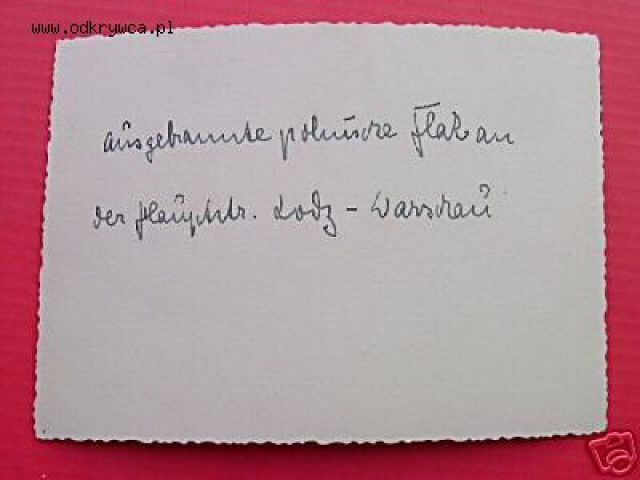 www.odkrywca.pl
ausgebrannte polnische Flak an
der Hauptstr. Lodz - Warschau